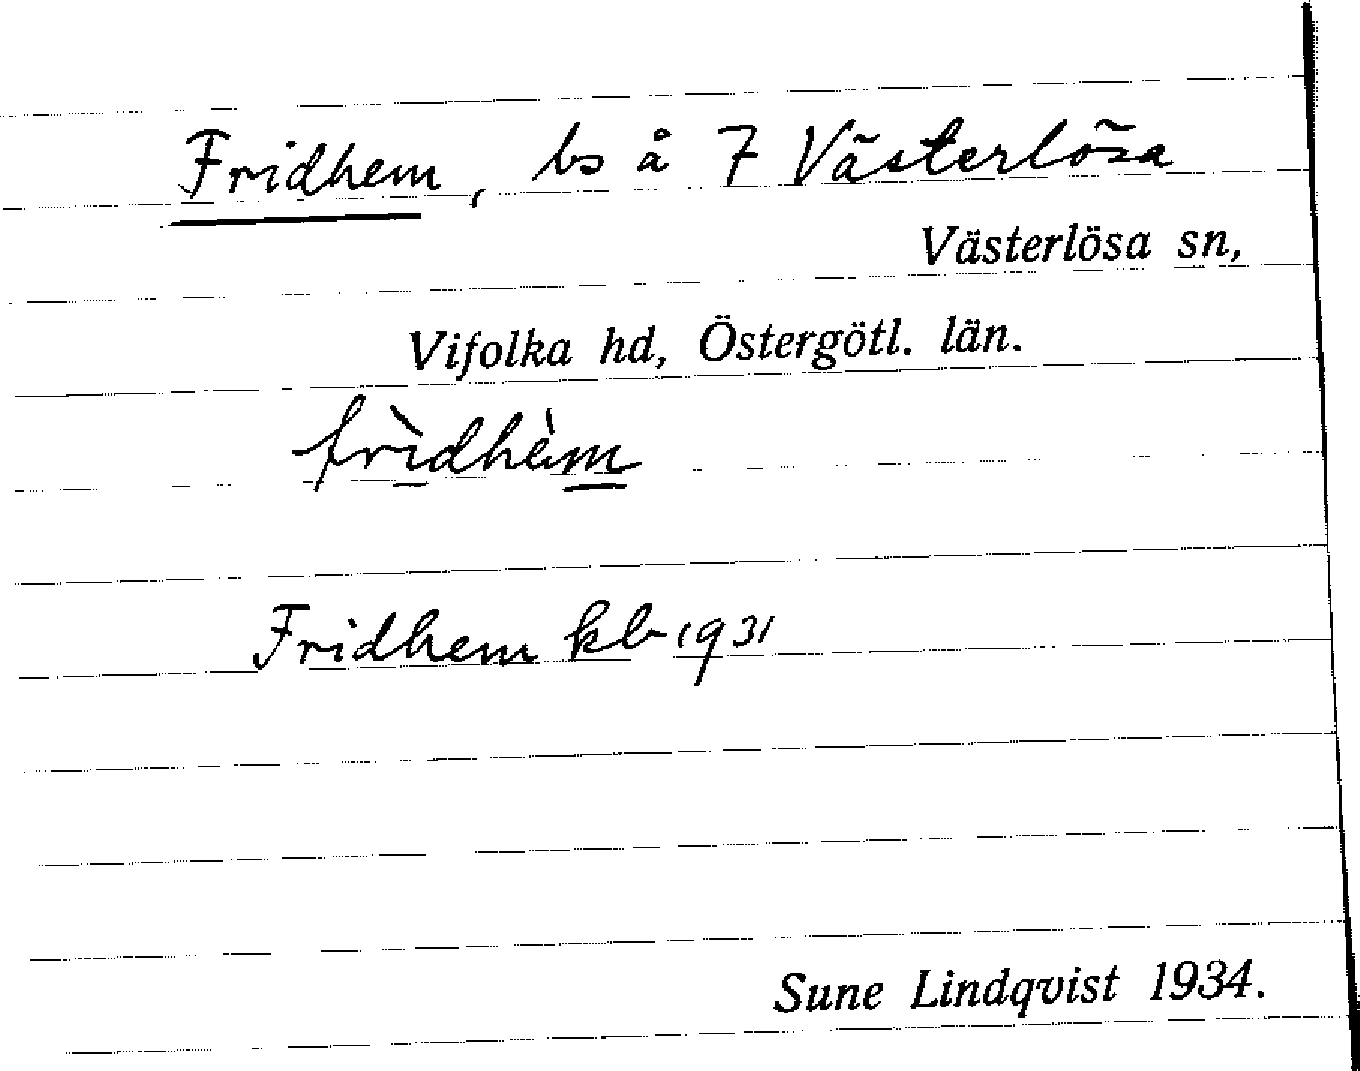 Fridhem, bs å 7 Västerlösa
Västerlösa sn,
Vifolka hd, Östergötl. län.
frìdhèm
Fridhem kb 1931
Sune Lindqvist 1934.